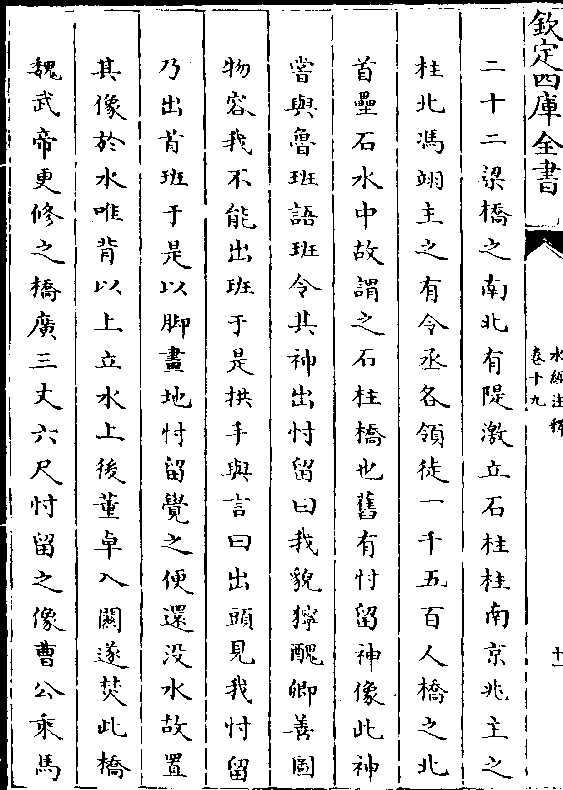 欽定四庫全書
水經注釋
卷十九
十一
二十二梁橋之南北有隄激立石柱柱南京兆主之
柱北馮翊主之有令丞各領徒一千五百人橋之北
首壘石水中故謂之石柱橋也舊有忖留神像此神
嘗與魯班語班令其神出忖留曰我貌獰醜卿善圖
物容我不能出班于是拱手與言曰出頭見我忖留
乃出首班于是以脚畫地忖留覺之便還没水故置
其像於水唯背以上立水上後董卓入關遂焚此橋
魏武帝更修之橋廣三丈六尺忖留之像曹公乘馬